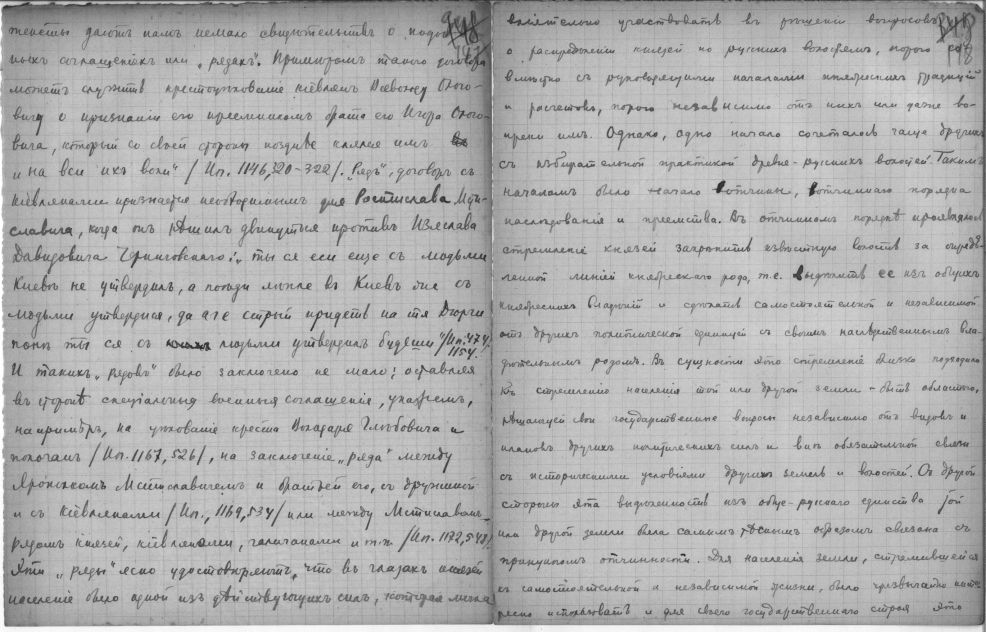 тексты даютъ намъ немало свидѣтельствъ о подоб-
ныхъ соглашеніяхъ или „рядахъ“. Примѣромъ такого договора
можетъ служить крестоцѣлованіе кіевлянъ Всеволоду Олего-
вичу о признаніи его преемникомъ брата его Игоря Олего-
вича, который со своей стороны цѣлуетъ имъ
и на всей ихъ воли“ /Ип. 1146, 320-322/. „Рядъ“, договоръ съ
кіевлянами признается необходимымъ для Ростислава Мсти-
славича, когда онъ рѣшилъ двинуться противъ Изяслава
Давидовича Черниговскаго: „ты ся еси еще съ людьми
Киевѣ не утвердилъ, а поѣди лѣпле въ Киевъ же съ
людьми утвердися, да аче стрый придетъ на тя Дюрги
понѣ ты ся съ людьми утвердилъ будеши“ /Ип. 474
1154.
И такихъ „рядовъ“ было заключено не мало; оставляя
въ сторонѣ спеціальныя военныя соглашенія, укажемъ,
напримѣръ, на цѣлованіе креста Володаря Глѣбовича и
полочанъ /Ип. 1167, 526/, на заключеніе „ряда“ между
Ярополкомъ Мстиславичемъ и братьей его, съ дружиной
и съ кіевлянами /Ип., 1169, 534/ или между Мстиславомъ,
рядомъ князей, кіевлянами, галичанами и т.п. /Ип. 1172, 548/.
Эти „ряды“ ясно удостовѣряютъ, что въ глазахъ князей
населеніе было одной изъ дѣйствующихъ силъ, которая могла
147
148
вліятельно участвовать въ рѣшеніи вопросовъ
о распредѣленіи князей по русскимъ волостямъ, порою со-
вмѣстно съ руководящими началами княжескихъ традицій
и расчетовъ, порою независимо отъ нихъ или даже во-
преки имъ. Однако, одно начало сочеталось чаще другихъ
съ избирательной практикой древне-русскихъ волостей. Такимъ
началомъ было начало вотчины, вотчиннаго порядка
наслѣдованія и преемства. Въ отчинномъ порядкѣ проявлялось
стремленіе князей закрѣпить извѣстную волость за опредѣ-
ленной линіей княжескаго рода, т.е. выдѣлить ее изъ общихъ
княжескихъ владѣній и сдѣлать самостоятельной и независимой
отъ другихъ политической единицей съ своимъ наслѣдственнымъ вла-
дѣтельнымъ родомъ. Въ сущности это стремленіе близко подходило
къ стремленію населенія той или другой земли - быть областью,
рѣшающей свои государственные вопросы независимо отъ видовъ и
плановъ другихъ политическихъ силъ и внѣ обязательной связи
съ историческими условіями другихъ земель и волостей. Съ другой
стороны эта выдѣленность изъ обще-русскаго единства той
или другой земли была самымъ тѣснымъ образомъ связана съ
принципомъ отчинности. Для населенія земли, стремившейся
къ самостоятельной и независимой жизни, было чрезвычайно инте-
ресно использовать и для своего государственнаго строя это